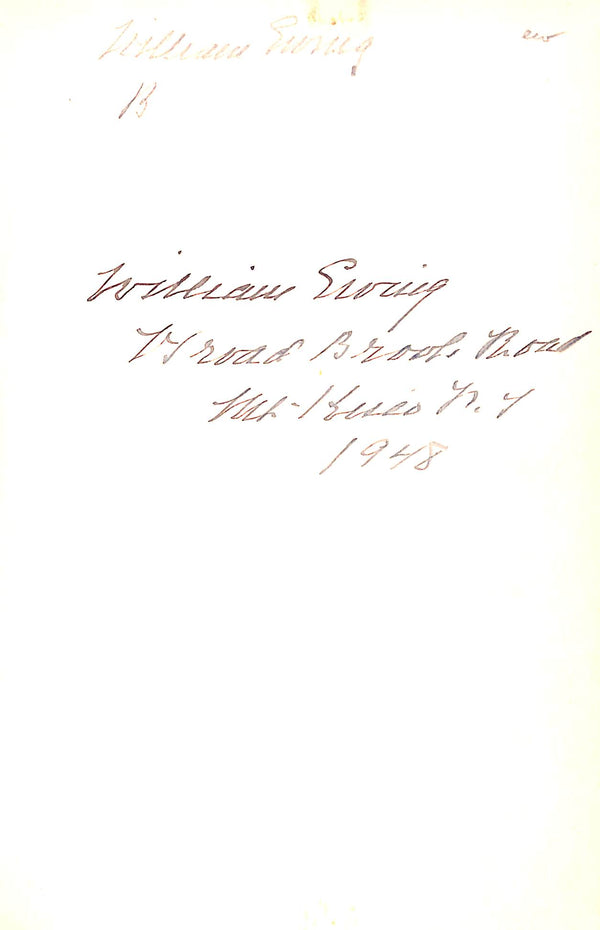 William Ewing
ew
B
William Ewing
Broad Brook Road
Mt-Kisco N.Y
1948